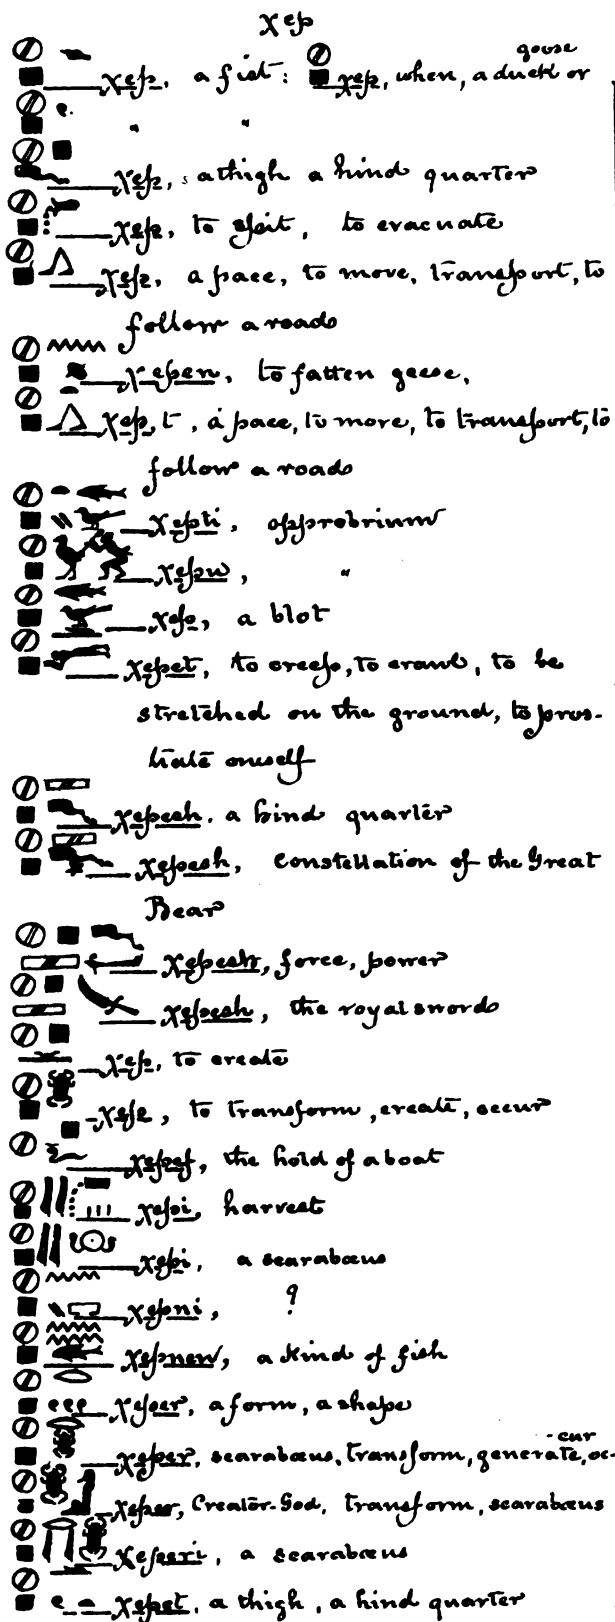 χep
χep, a fist: χep, when, a duck or goose
" "
χep, a thigh a hind quarter
χep, to spit, to evacuate
χep, a pace, to move, transport, to
follow a roads
χepen, to fatten geese,
χep,t, a pace, to move, to transport, to
follow a roads
χepti, opprobrium
χepu, "
χep, a blot
χepet, to creep, to crawl, to be
stretched on the ground, to pros-
trate oneself
χepesh. a hind quarter
χepesh, constellation of the Great
Bear
χepesh, force, power
χepesh, the royal sword
χep, to create
χep, to transform, create, occur
χepef, the hold of a boat
χepi, harvest
χepi, a scarabæus
χepni, ?
χepnen, a kind of fish
χeper, a form, a shape
χeper, scarabæus, transform, generate, oc-cur
χeper, Creator-God, transform, scarabæus
χeperi, a scarabæus
χepet, a thigh, a hind quarter